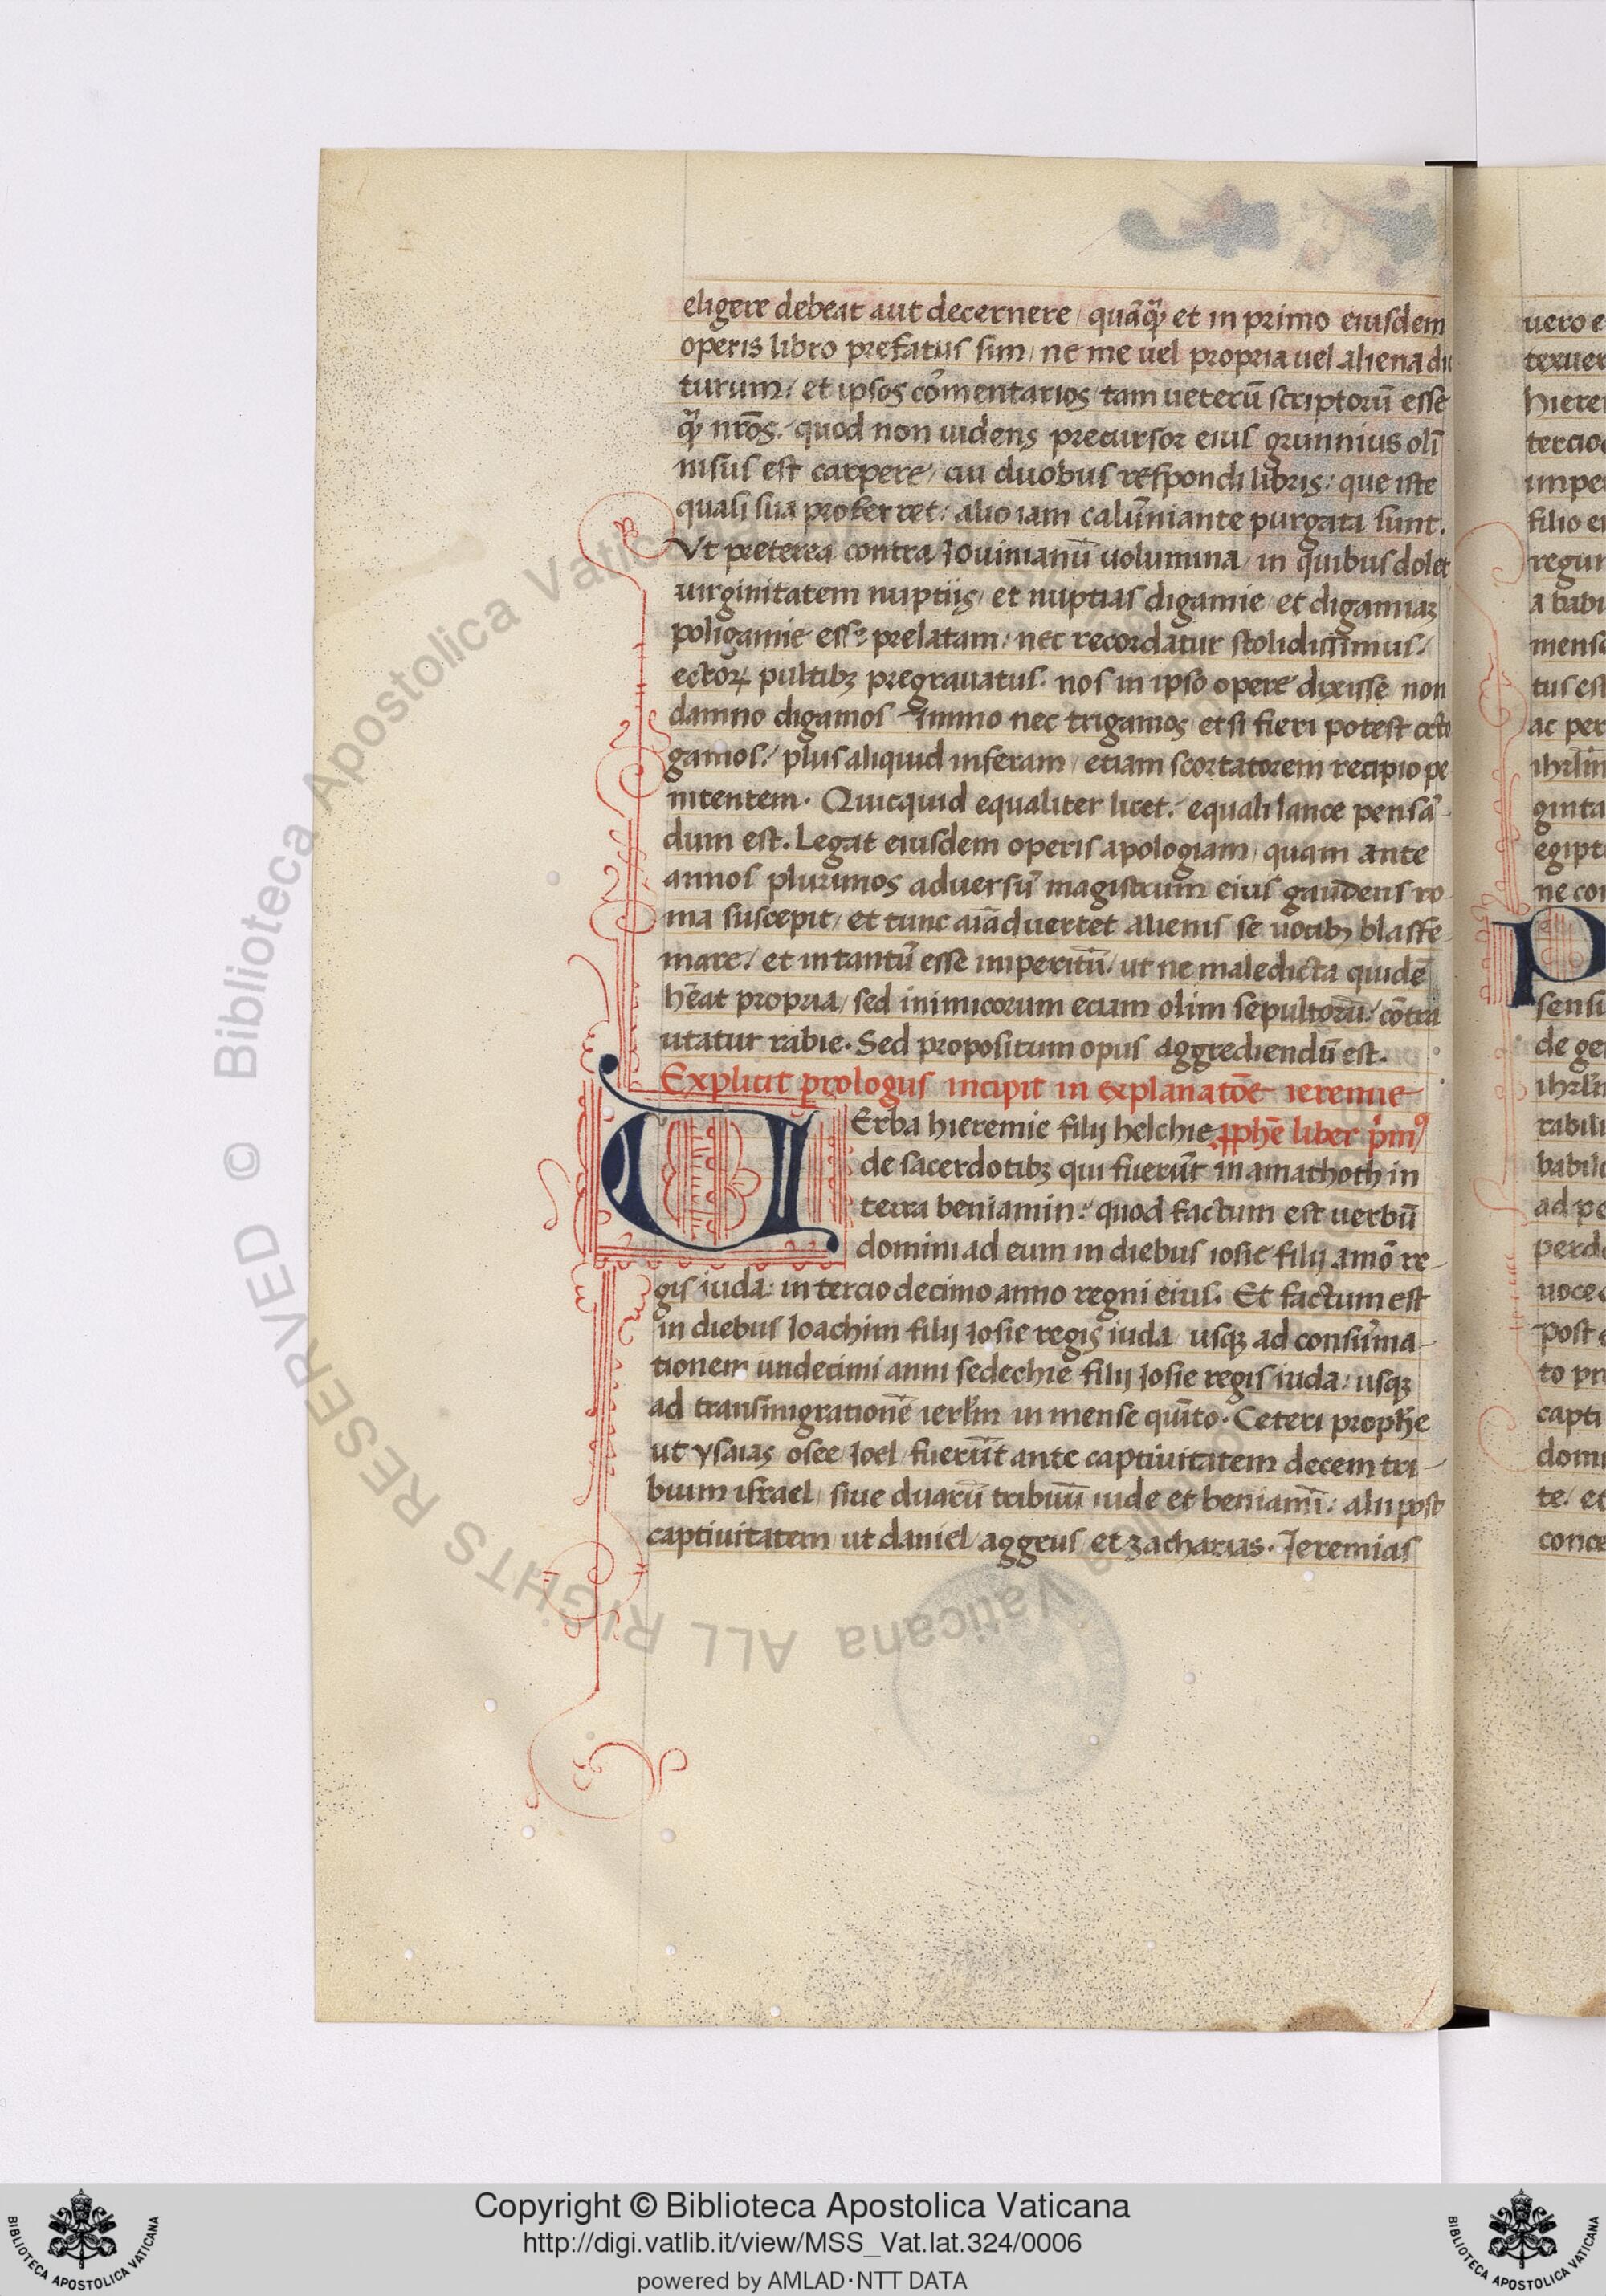 eligere debeat aut decernere / quāq̄ꝫ et in primo eiusdem
operis libro prefatus sim / ne me uel propria uel aliena di
turum / et ipsos cōmentarios tam ueterū scriptorū esse
q̄ꝫ nr̄os / quod non uidens precursor eius grunnius olī
nisus est carpere / cui duobus respondi libris: que iste
quasi sua proferret: alio iam calūniante purgata sunt.
Vt preterea contra Iouinianū uolumina / in quibus dolet
uirginitatem nuptiis / et nuptias digamie / et digamiaꝫ
poligamie esse prelatam / nec recordatur stolidissimus /
ectoꝝ pultibꝫ pregrauatus. nos in ipso opere dixisse non
damno digamos Immo nec trigamos et si fieri potest octo
gamos / plus aliquid inferam / etiam scortatorem recipio pe
nitentem. Quicquid equaliter licet / equali lance pensā-
dum est. Legat eiusdem operis apologiam / quam ante
annos plurimos aduersū magistrum eius gaudens ro-
ma suscepit / et tunc aīaduertet alienis se uocibꝫ blasfe-
mare / et in tantū esse imperitū / ut ne maledicta quidē
hēat propria / sed inimicorum eciam olim sepultorū / cōtra
utatur rabie. Sed propositum opus aggrediendū est.
Explicit prologus incipit in explanatōe ieremie
VErba hieremie filij helchie ꝓphē liber p̄mꝰ
de sacerdotibꝫ qui fuerūt in amathoth in
terra beniamin / quod factum est uerbū
domini ad eum in diebus iosie filij amō re-
gis iuda: in tercio decimo anno regni eius. Et factum est
in diebus Ioachim filij Iosie regis iuda usqꝫ ad consūma-
tionem undecimi anni sedechie filij Iosie regis iuda / usqꝫ
ad transmigrationē ierl̄m in mense quīto. Ceteri prophe
ut ysaias osee Ioel fuerūt ante captiuitatem decem tri-
buum israel / siue duarū tribuū iude et beniamī: alii post
captiuitatem ut daniel aggeus et zacharias. Ieremias
uero e
texuer
hiere
tercio
impe
filio e
regum
a babi
mense
tus est
ac per
ihrlm̄
ginta
egipt
ne con
P
sensu
de ge
ihrlm̄
rabili
babilo
ad pe
perd
uoce
post
to pr
capti
domi
te / et
conce
© Biblioteca Apostolica Vaticana ALL RIGHTS RESERVED
Copyright © Biblioteca Apostolica Vaticana
http://digi.vatlib.it/view/MSS_Vat.lat.324/0006
powered by AMLAD·NTT DATA
BIBLIOTECA APOSTOLICA VATICANA
BIBLIOTECA APOSTOLICA VATICANA